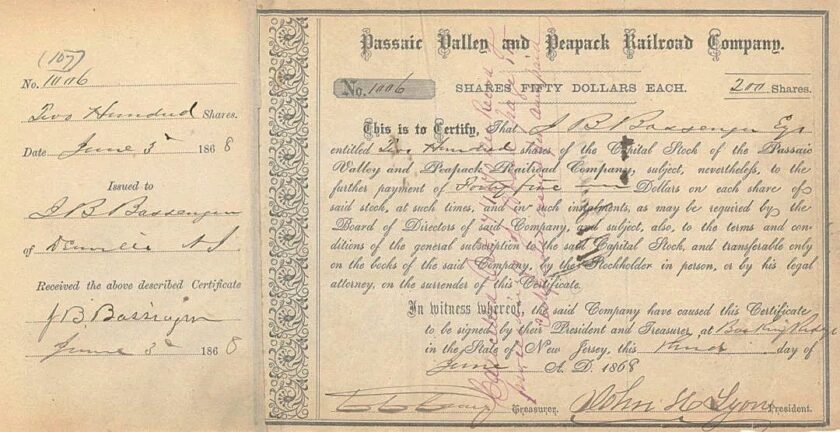 (107)
No. 1006
Two Hundred Shares.
Date June 3d 1868
Issued to
J B Bassenger
of Denville N J
Received the above described Certificate
J. B. Bassinger
June 3d 1868
Passaic Valley and Peapack Railroad Company.
No. 1006 SHARES FIFTY DOLLARS EACH. 200 Shares.
This is to Certify, That J B Bassenger Esq
entitled Two Hundred shares of the Capital Stock of the Passaic
Valley and Peapack Railroad Company, subject, nevertheless, to the
further payment of Forty five Dollars on each share of
said stock, at such times, and in such instalments, as may be required by the
Board of Directors of said Company, and subject, also, to the terms and con-
ditions of the general subscription to the said Capital Stock, and transferable only
on the books of the said Company, by the Stockholder in person, or by his legal
attorney, on the surrender of this Certificate.
In witness whereof, the said Company have caused this Certificate
to be signed by their President and Treasurer, at Basking Ridge
in the State of New Jersey, this Third day of
June A. D. 1868
Treasurer. John H Lyon President.
Cancelled